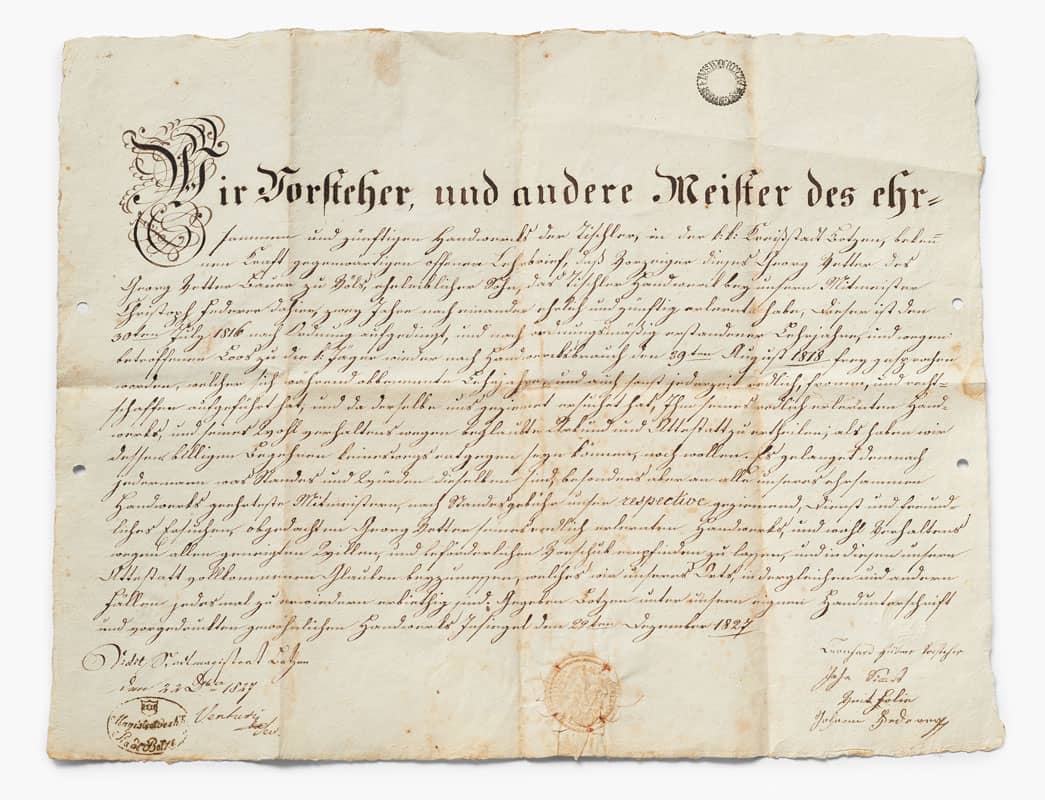 Wir Vorsteher, und andere Meister des ehr=
samen und zünftigen Handwerks der Tischler, in der k: k: Kreisstadt Botzen, beken̄
nen Kraft gegenwärtigen offenen Lehrbrief, daß Vorzeiger dieses Georg Vetter des
Georg Vetter Bauer zu Völs eheleiblicher Sohn, das Tischler Handwerk bey unserm Mitmeister
Christoph Federer dahier, zwey Jahre nach einander ehrlich und zünftig erlernt habe, dieser ist den
30ten July 1816 nach Ordnung aufgedingt, und nach ordnungsmäßig erstandener Lehrjahre, und wegen
betroffenen Loos zu die k: Jäger wieder nach Handwerksbrauch den 29ten August 1818 frey gesprochen
worden, welcher sich während Lehrjahre, und auch sonst jederzeit redlich, fromm, und recht=
schaffen aufgeführt hat, und da derselbe uns geziement ersucht hat, Ihm seines redlich erlernten Hand=
werks, und seines Wohl verhaltens wegen beglaubte Urkund und Attestatt zu ertheilen; als haben wir
dessen billigen Begehren keineswegs entgegen seyn können, noch wollen. Es gelanget demnach
jedermann was Standes und Würden dieselben sind, besonders aber an alle unseres ehrsamen
Handwerks geehrteste Mitmeistern, nach Standesgebühr unser respective geziemend, Dienst und freund=
liches Ersuchen, obgedachten Georg Vetter seines redlich erlernten Handwerks, und wohl Verhaltens
wegen allen geneigten Willen, und beförderlichen Vorschub empfinden zu lassen, und in diesem unsern
Attestatt vollkommenen Glauben beyzumessen, welches wir unseres Orts, in dergleichen und andern
Fällen jedes mal zu erwiedern erbiethig sind. Gegeben Botzen unter unsern eignen Handunterschrift
und vorgedruckten gewöhnlichen Handwerks Insiegel den 29ten Dezember 1827
Vidit Stadtmagistrat Botzen
den 22 1827
Venturi
Leonhard Huber Vorsteher
Joha
Veit
Johann